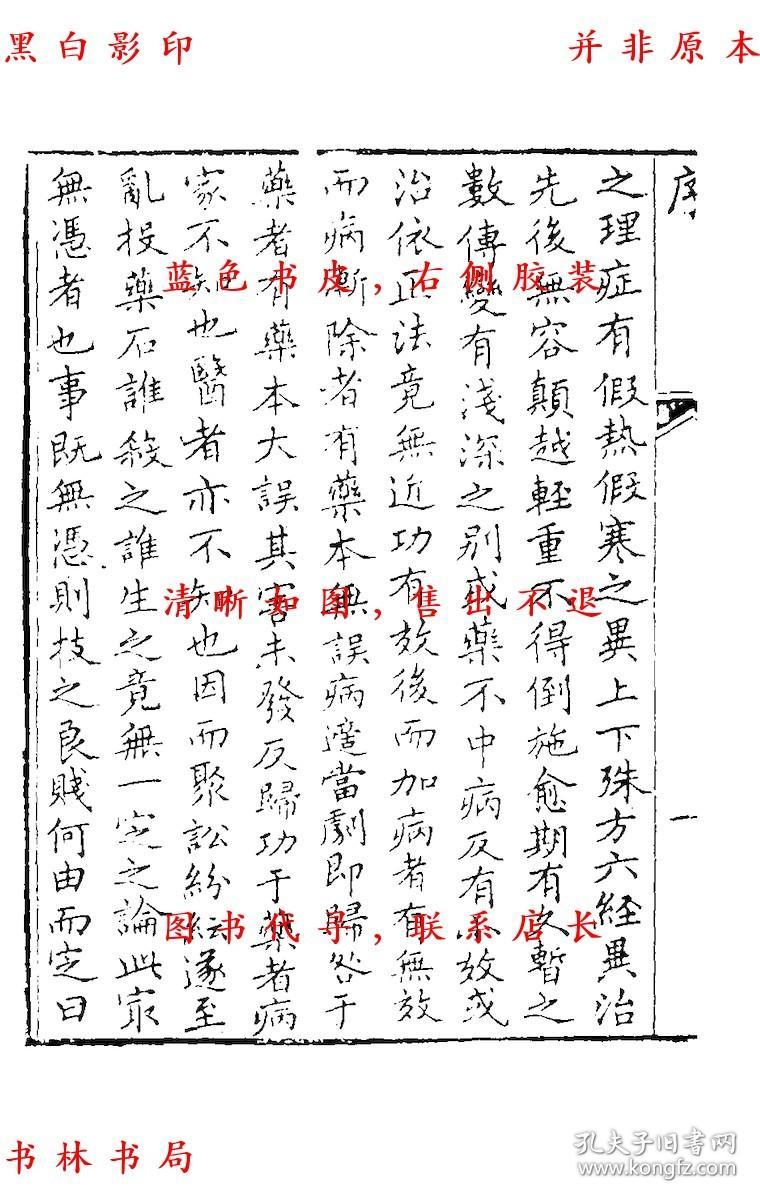 黑白影印
并非原本
序
一
之理症有假熱假寒之異上下殊方六經異治
先後無容顛越輕重不得倒施愈期有久暫之
數傳變有淺深之別或藥不中病反有小效或
治依正法竟無近功有效後而加病者有無效
而病漸除者有藥本無誤病適當劇即歸咎于
藥者有藥本大誤其害未發反歸功于藥者病
家不知也醫者亦不知也因而聚訟紛紜遂至
亂投藥石誰殺之誰生之竟無一定之論此最
無憑者也事既無憑則技之良賤何由而定曰
蓝色书皮,右侧胶装
清晰如图,售出不退
图书代寻,联系店长
书林书局
孔夫子旧书网
www.kongfz.com